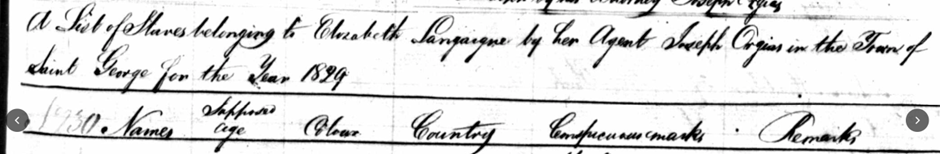 A List of Slaves belonging to Elizabeth Langaigne by her Agent Joseph Orgias in the Town of
Saint George for the Year 1829
Names Supposed age Colour Country Conspicuous marks Remarks